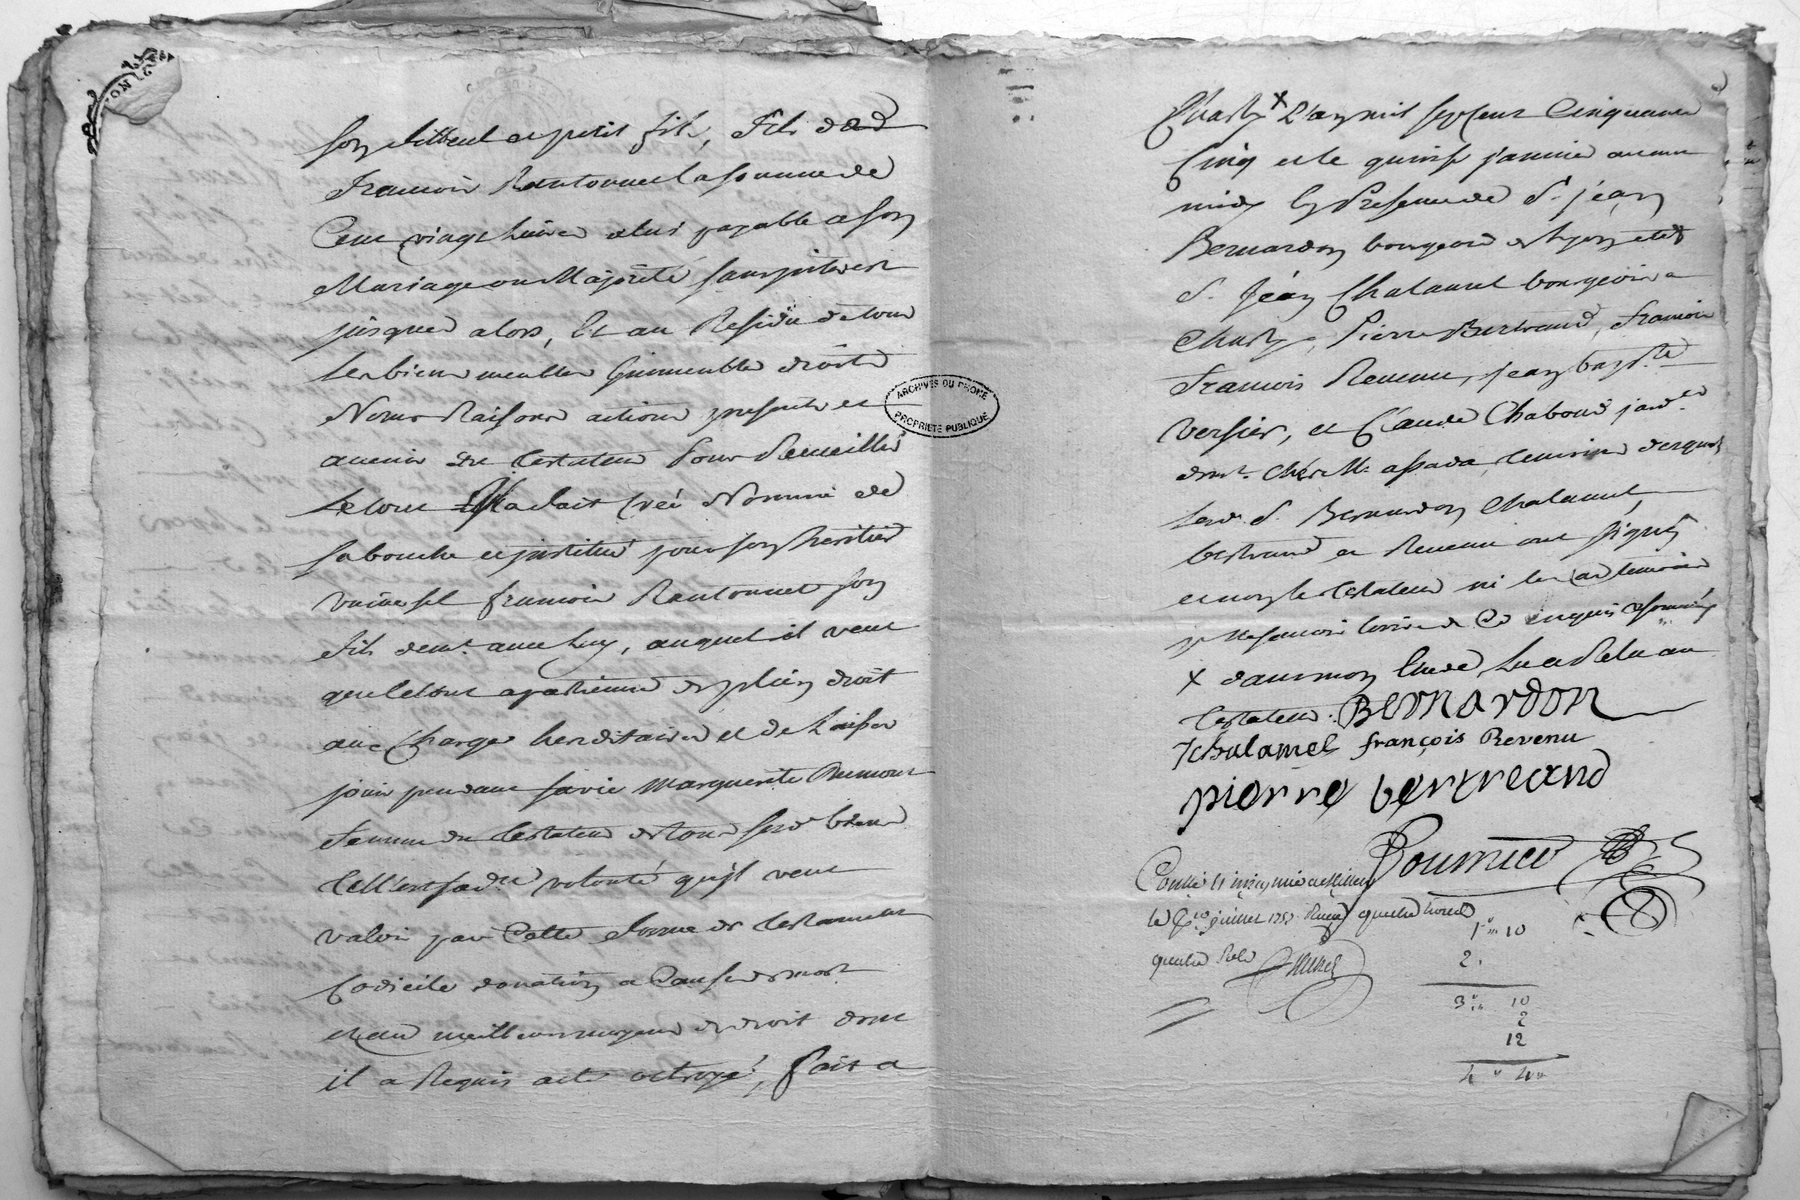 son filleul et petit fils, fils dud
francois Rantonnet la somme de
Cent vingt livres a lui payable a son
Mariage ou Majorité sans interest
jusques alors, Et au Residu de tous
ses biens meubles immeubles droits
Noms Raisons actions presents et
avenir du testateur Pour Recueillir
le tout Il a fait créé Nommé de
sa bouche et institué pour son heritier
universel francois Rantonnet son
fils demt. avec luy, auquel il veut
que le tout apartienne de plein droit
aux Charges hereditaires et de laisser
jouir pendant sa vie Marguerite
femme du testateur de tous sesd. biens
Telle est sad.te volonté qu'il veut
valoir par Cette forme de testament
Codicile donation a Cause de mort
et au meilleur moyens de droit dont
il a Requis acte octroyé, fait a
ARCHIVES DU RHONE
PROPRIETE PUBLIQUE
x L'an mil sept cent Cinquante
Cinq et le quinze janvier avant
midy En Presence de Sr. jean
Bernardon bourgeois de lyon et de
Sr. Jean Chalamel bourgeois a
Pierre Bertrand, francois
francois Revenu, jean bapt.te
Versier, et Claude Chaboud
demt. temoins desquels
lesd. Sr. Bernardon Chalamel,
bertrand et Revenu ont signés
et non le testateur ni les autres temoins
pr. ne scavoir Ecrire de Ce enquis
x dans mon Etude, Lu et Relu au
testateur. BERNARDON
JChalamel françois Revenu
pierre bertreand
Conllé
le juillet Reçu quatre livres
quatre sols
1 " 10
2 "
3 " 10
2
12
4 " 4 "